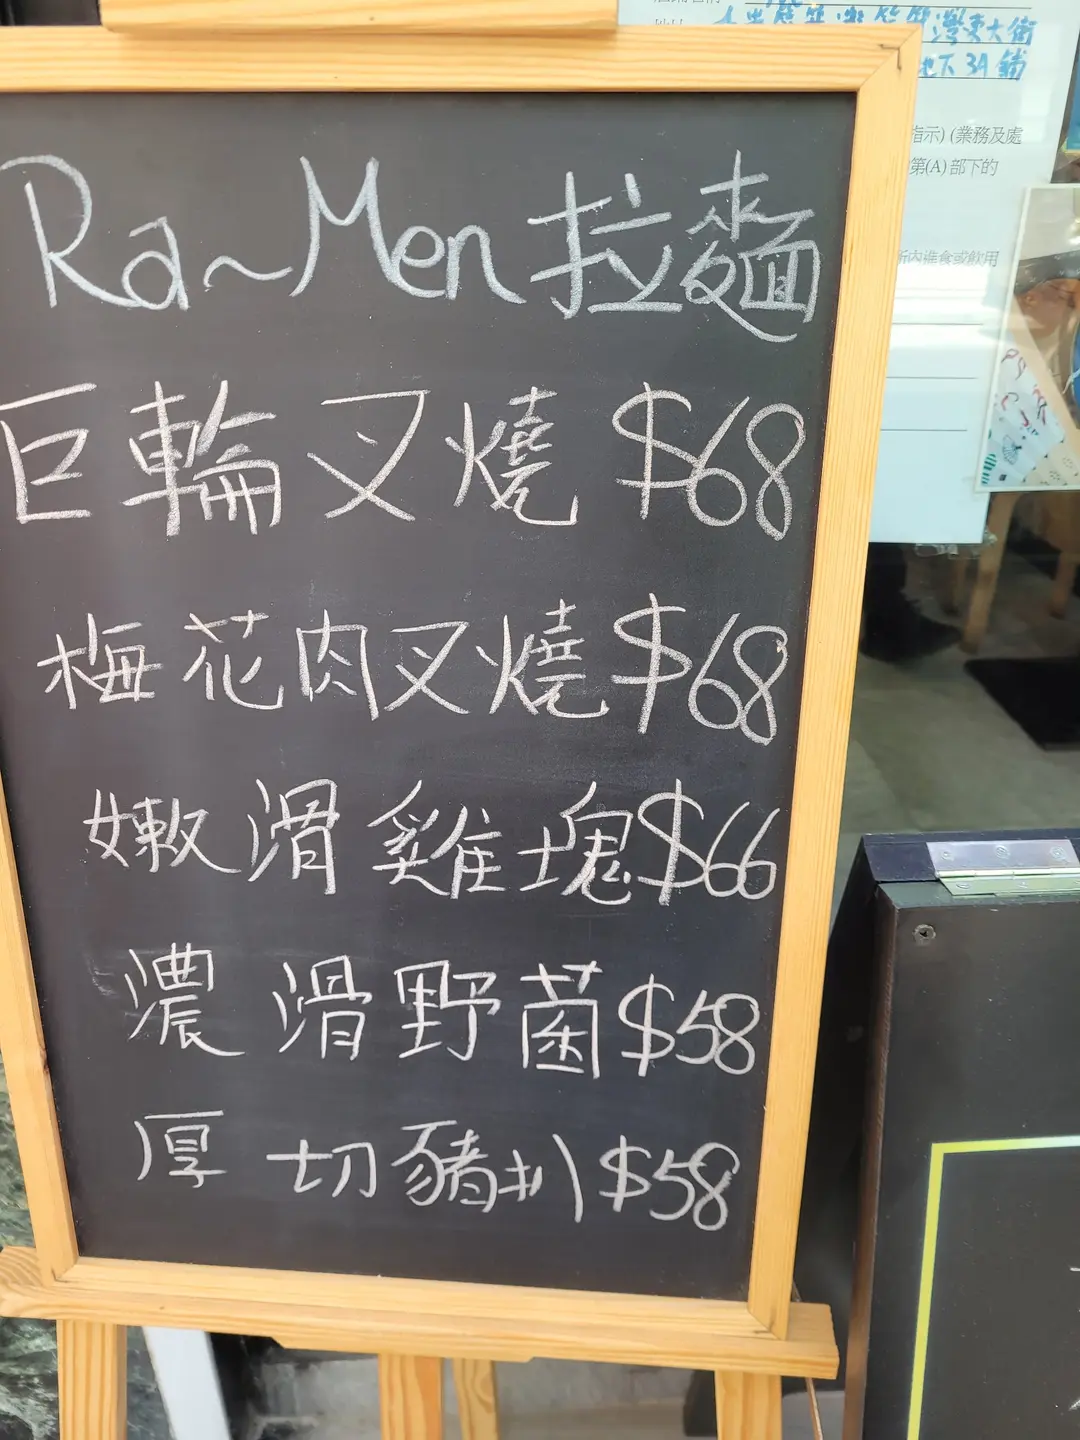 灣東大街
地下 3A 鋪
指示) (業務及處
第(A) 部下的
內進食或飲用
Ra~Men 拉麵
巨輪叉燒 $68
梅花肉叉燒 $68
嫩滑雞塊 $66
濃滑野菌 $58
厚切豬扒 $58